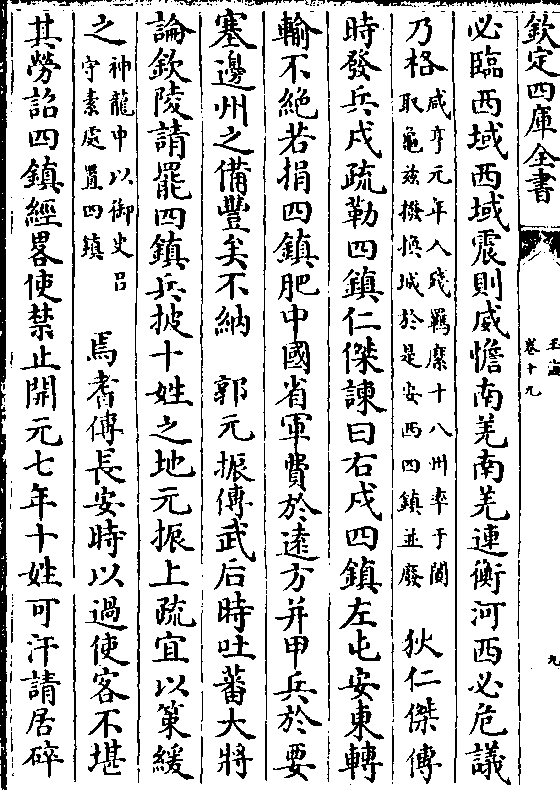 欽定四庫全書
玉海
卷十九
九
必臨西域西域震則威憺南羌南羌連衡河西必危議
乃格咸亨元年入殘羈縻十八州率于闐
取龜兹撥換城於是安西四鎮並廢
狄仁傑傳
時發兵戍疏勒四鎮仁傑諫曰右戍四鎮左屯安東轉
輸不絶若捐四鎮肥中國省軍費於逺方并甲兵於要
塞邊州之備豐矣不納　郭元振傳武后時吐蕃大將
論欽陵請罷四鎮兵披十姓之地元振上疏宜以策緩
之神龍中以御史吕
守素處置四鎮
焉耆傳長安時以過使客不堪
其勞詔四鎮經畧使禁止開元七年十姓可汗請居碎